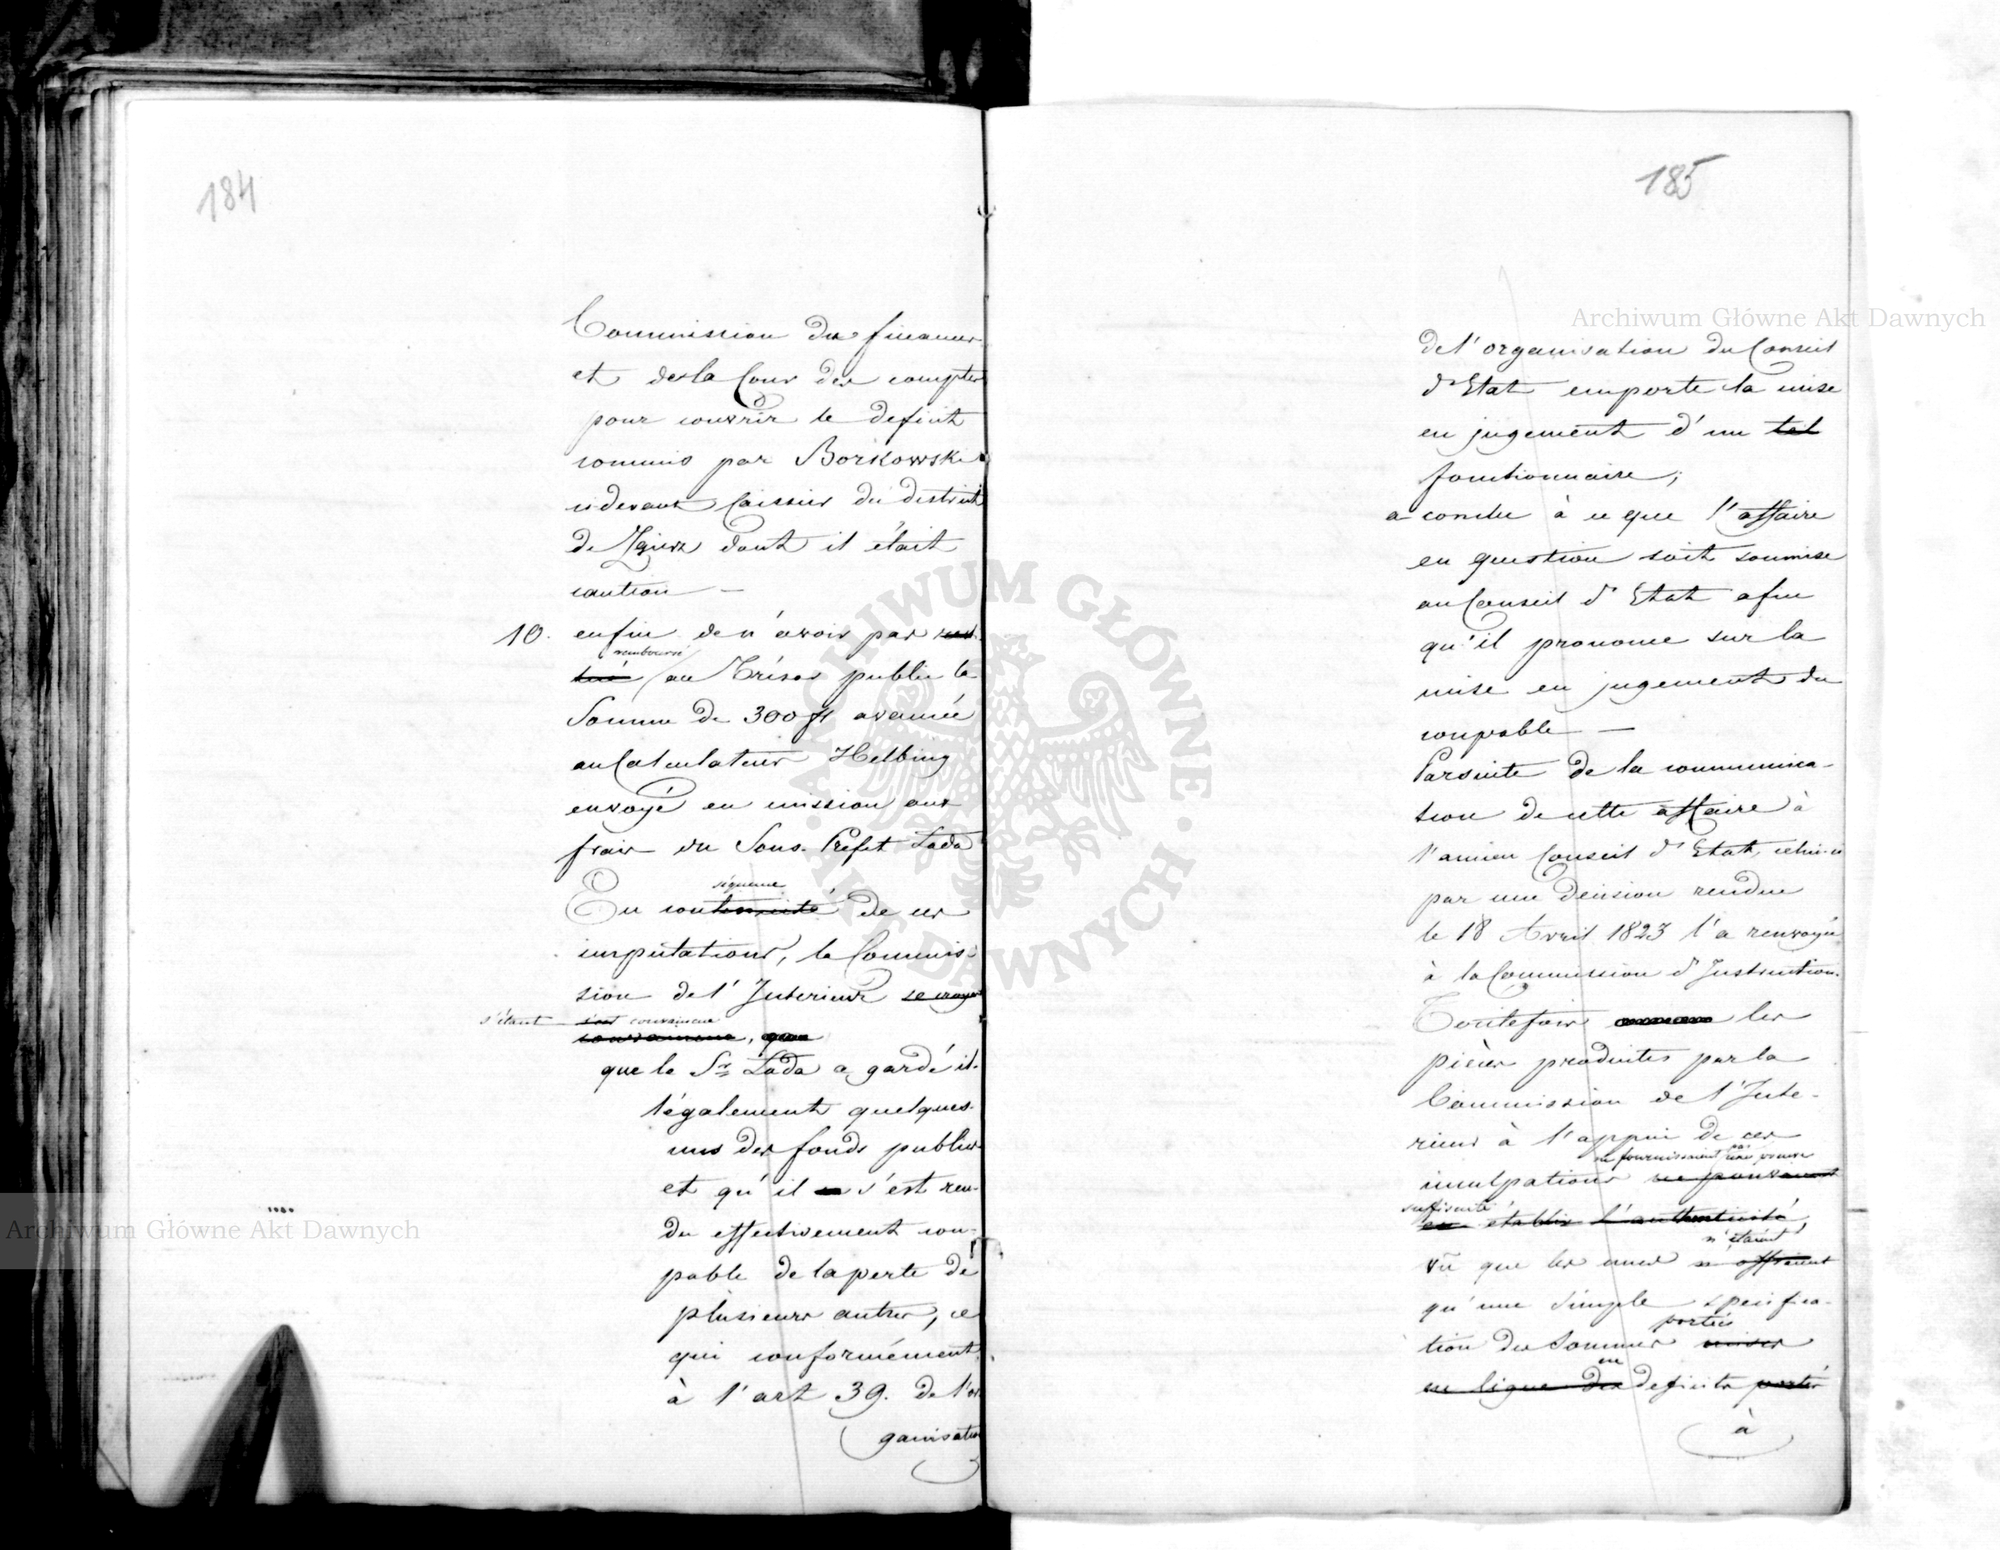 184
Commission des finances
et de la Cour des comptes
pour couvrir le deficit
commis par Borkowski
cidevant Caissier du district
de Zgierz dont il était
caution —
10. enfin de n'avoir pas resti-
remboursé
tué au Trésor public la
Somme de 300 fl avancée
au Calculateur Helbing
envoyé en mission aux
frais du Sous-Préfet Łada
séquence
En continuité de ces
imputations, la Commis-
sion de l'Interieur se croyant
s'étant s'est convaincue
convaincue, que
que le Sr Łada a gardé il-
légalement quelques-
uns des fonds publics
et qu'il s'est ren-
du effectivement cou-
pable de la perte de
plusieurs autres, ce
qui conformément
à l'art 39. de l'or
ganisation
185
de l'organisation du Conseil
d'Etat emporte la mise
en jugement d'un tel
fonctionnaire;
a conclu à ce que l'affaire
en question soit soumise
au Conseil d'Etat afin
qu'il prononce sur la
mise en jugement du
coupable —
Par suite de la communica-
tion de cette affaire à
l'ancien Conseil d'Etat, celui-ci
par une décision rendue
le 18 Avril 1823 l'a renvoyée
à la Commission d'Instruction.
Toutefois les
pièces produites par la
Commission de l'Inte-
rieur à l'appui de ces
ne fournissaient pas une preuve
inculpations ne pouvaient
suffisante
en établir l'authenticité,
n'étaient
vû que les unes n'offraient
qu'une simple specifica-
portées
tion des sommes mises
en
en ligne des deficits portés
à
Archiwum Główne Akt Dawnych
Archiwum Główne Akt Dawnych
ARCHIWUM GŁÓWNE · AKT DAWNYCH ·